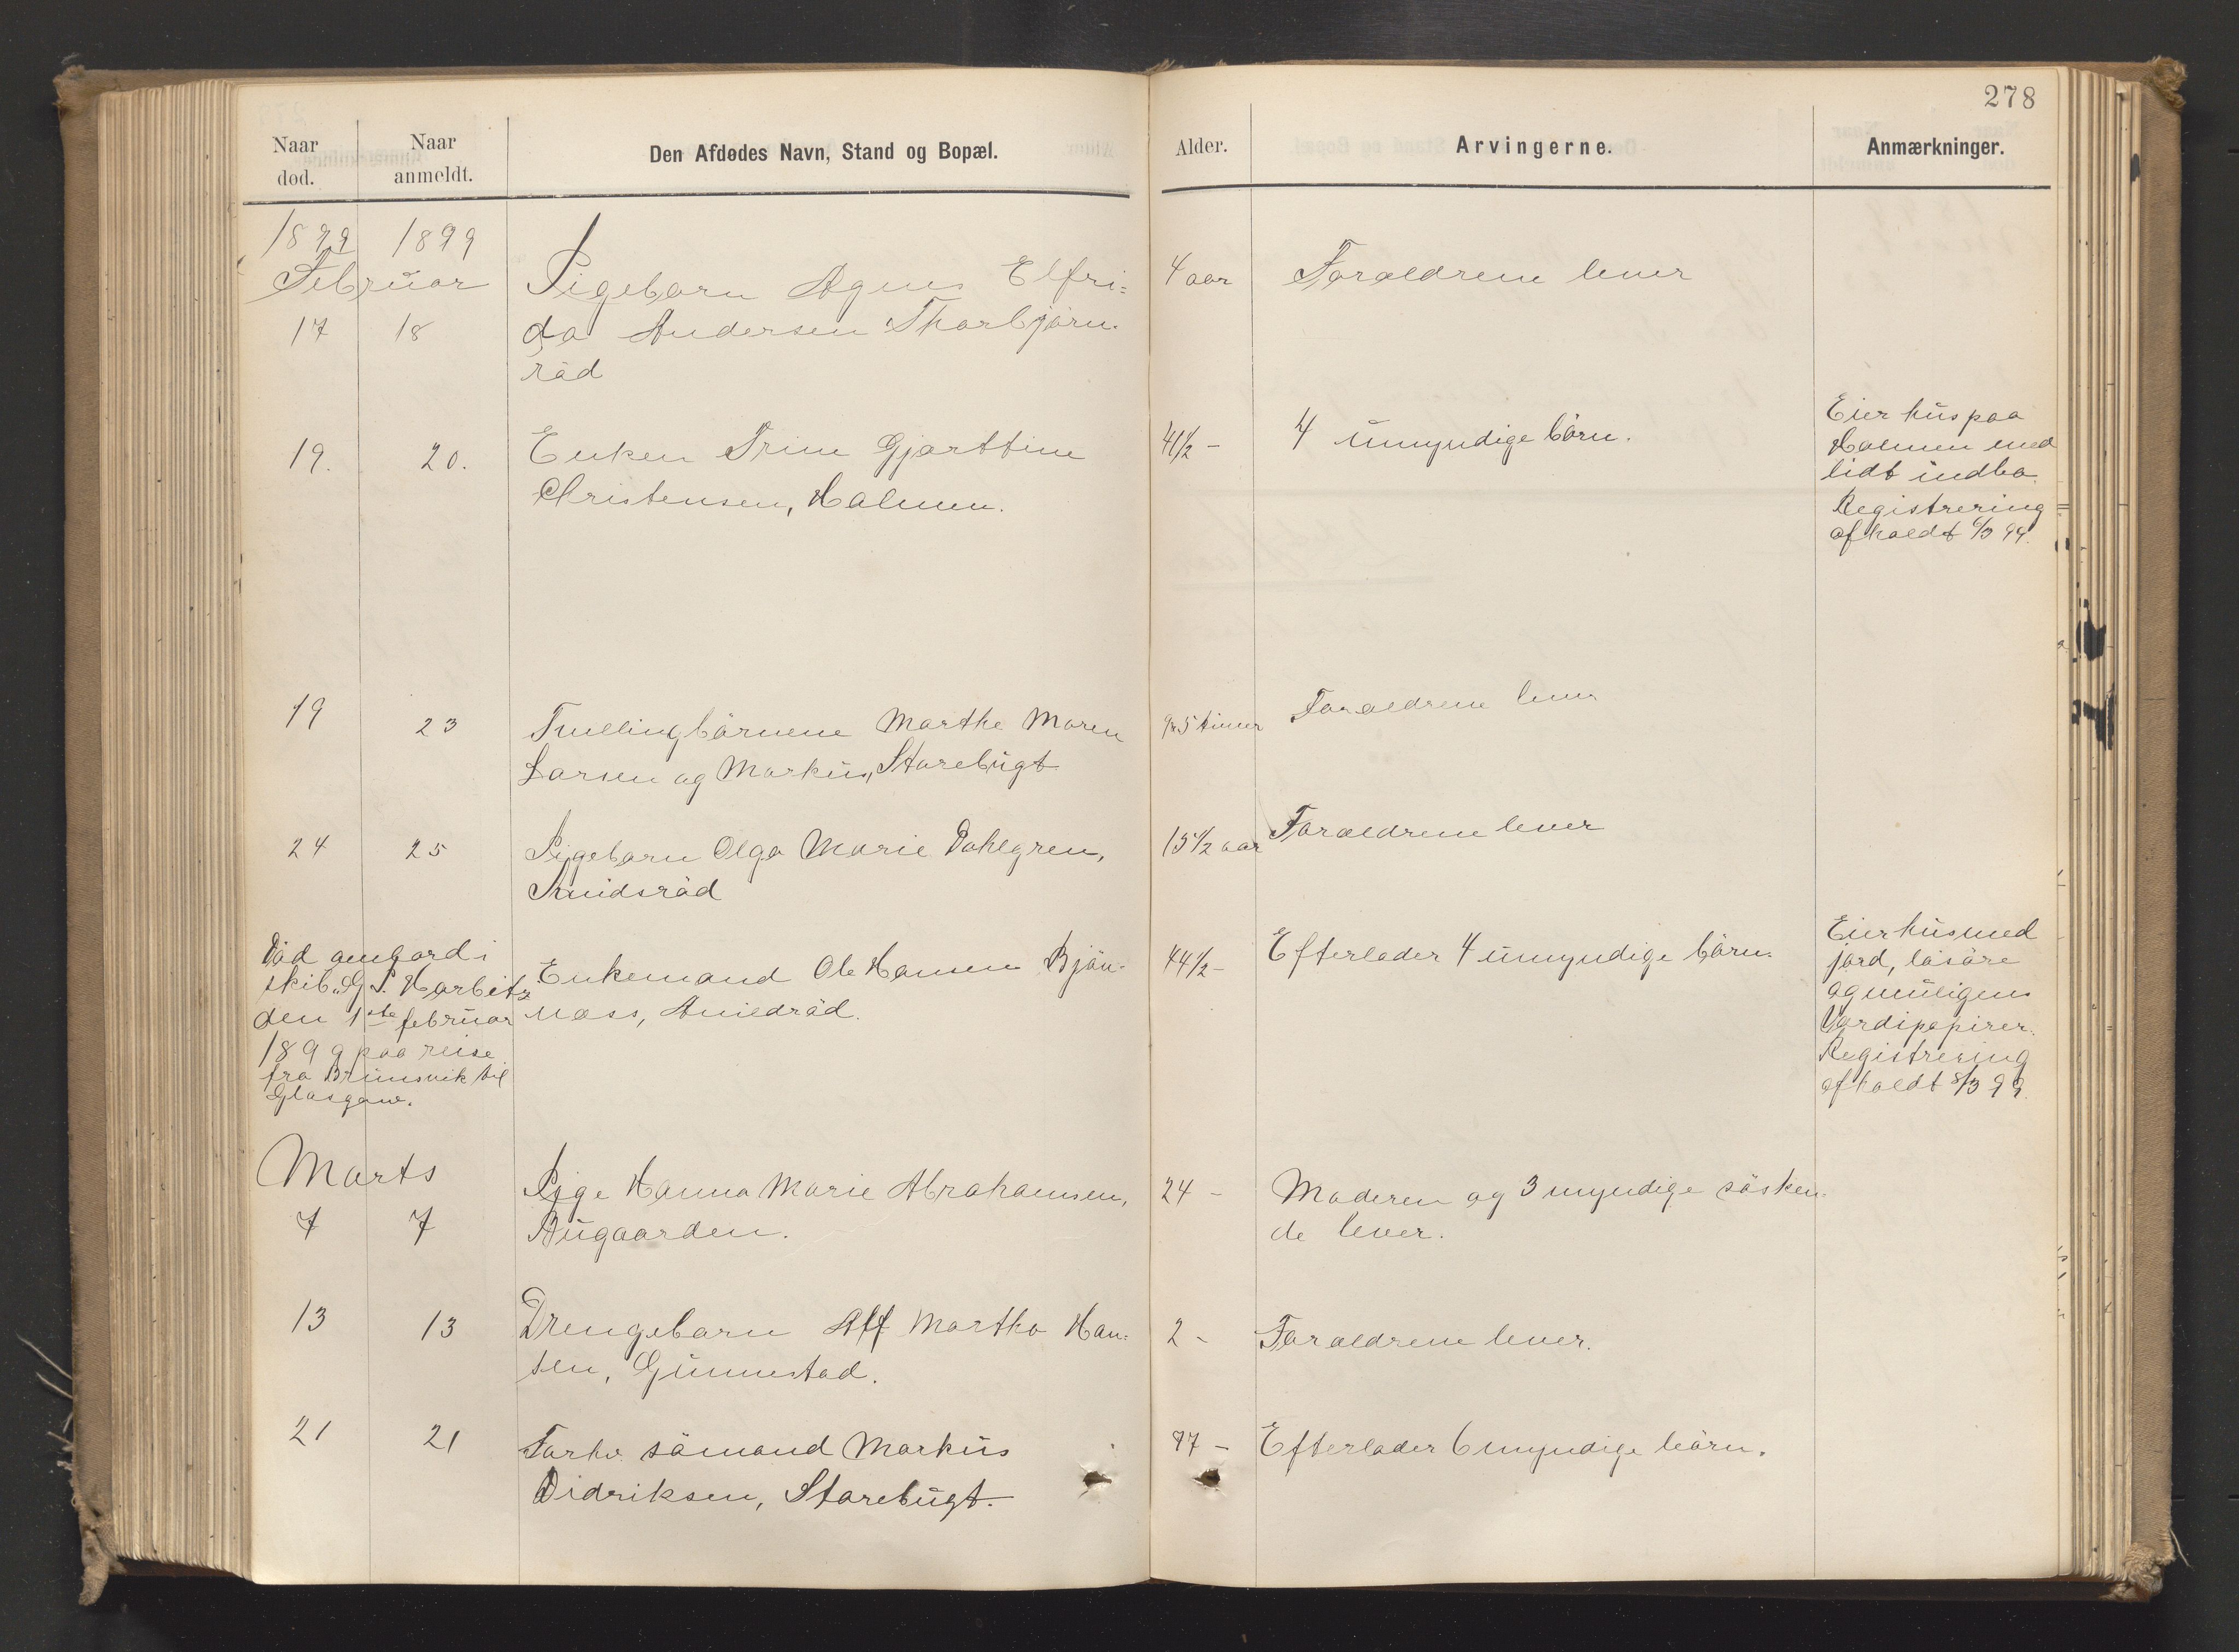 278
Naar
død.
Naar
anmeldt.
Den Afdødes Navn, Stand og Bopæl.
Alder.
Arvingerne.
Anmærkninger.
1899 1899
Februar
17 18
Pigebarn Agnes Elfri=
da Andersen Thorbjørn-
rød
4 aar
Forældrene lever
19. 20.
Enken Trine Gjarttine
Christensen, Holmen.
41½ -
4 umyndige børn.
Eier hus paa
Holmen med
lidt indbo.
Registrering
afholdt 6/3 99.
19 23
Tvellingbørnene Marthe Maren
Larsen og Markus, Storebugt
9 & 5 timer
Forældrene lever
24 25
Pigebarn Olga Marie Dahlgren,
Smidsrød
15½ aar
Forældrene lever
Død ombord i
skib "G. P. Harbitz
den 1ste februar
1899 paa reise
fra Brunsvik til
Glasgow.
Enkemand Ole Hansen Bjøn-
næss, Arnildrød.
44½ -
Efterlader 4 umyndige børn.
Eier hus med
jord, løsøre
og muligens
Værdipapirer.
Registrering
afholdt 8/3 99.
Marts
7 7
Pige Hanna Marie Abrahamsen,
Augaarden.
24 -
Moderen og 3 myndige søsken-
de lever.
13 13
Drengebarn Alf Martho Han-
sen, Gunnestad.
2 -
Forældrene lever.
21 21
Forhv. sømand Markus
Didriksen, Storebugt.
77 -
Efterlader 6 myndige børn.